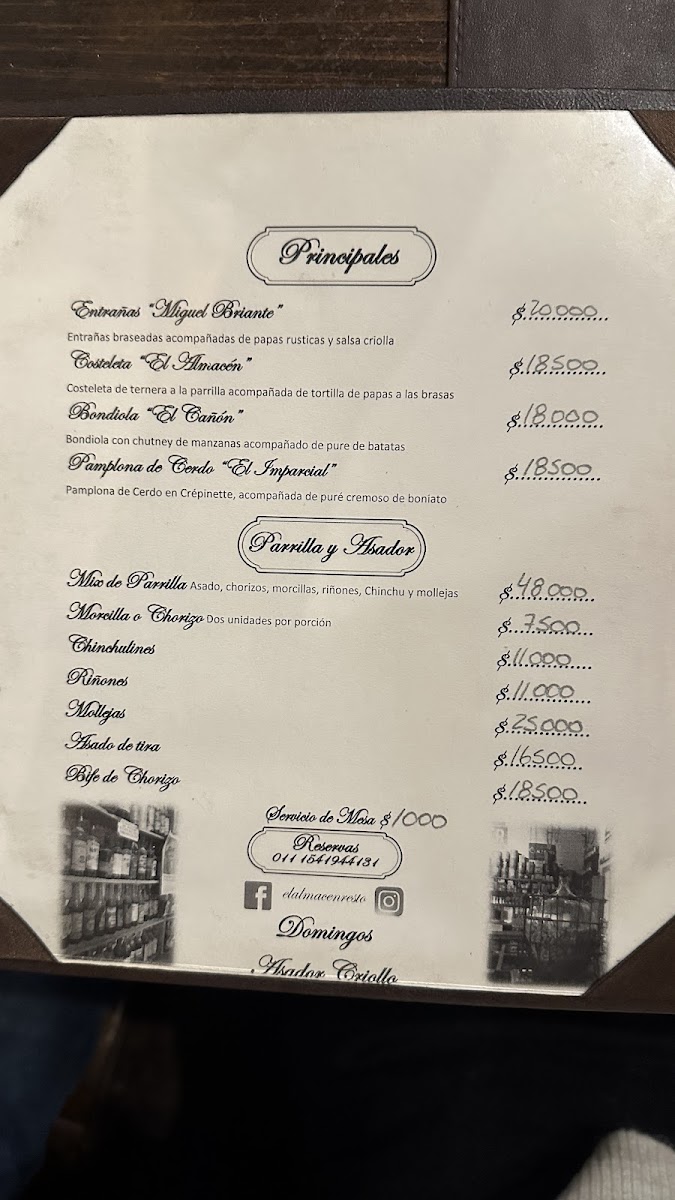 Principales
Entrañas "Miguel Briante" $ 20.000
Entrañas braseadas acompañadas de papas rusticas y salsa criolla
Costeleta "El Almacén" $ 18500
Costeleta de ternera a la parrilla acompañada de tortilla de papas a las brasas
Bondiola "El Cañón" $ 18.000
Bondiola con chutney de manzanas acompañado de pure de batatas
Pamplona de Cerdo "El Imparcial" $ 18500
Pamplona de Cerdo en Crépinette, acompañada de puré cremoso de boniato
Parrilla y Asador
Mix de Parrilla Asado, chorizos, morcillas, riñones, Chinchu y mollejas $ 48.000
Morcilla o Chorizo Dos unidades por porción $ 7500
Chinchulines $ 11.000
Riñones $ 11.000
Mollejas $ 25000
Asado de tira $ 16500
Bife de Chorizo $ 18500
Servicio de Mesa $ 1000
Reservas
011 1541944131
elalmacenresto
Domingos
Asador Criollo